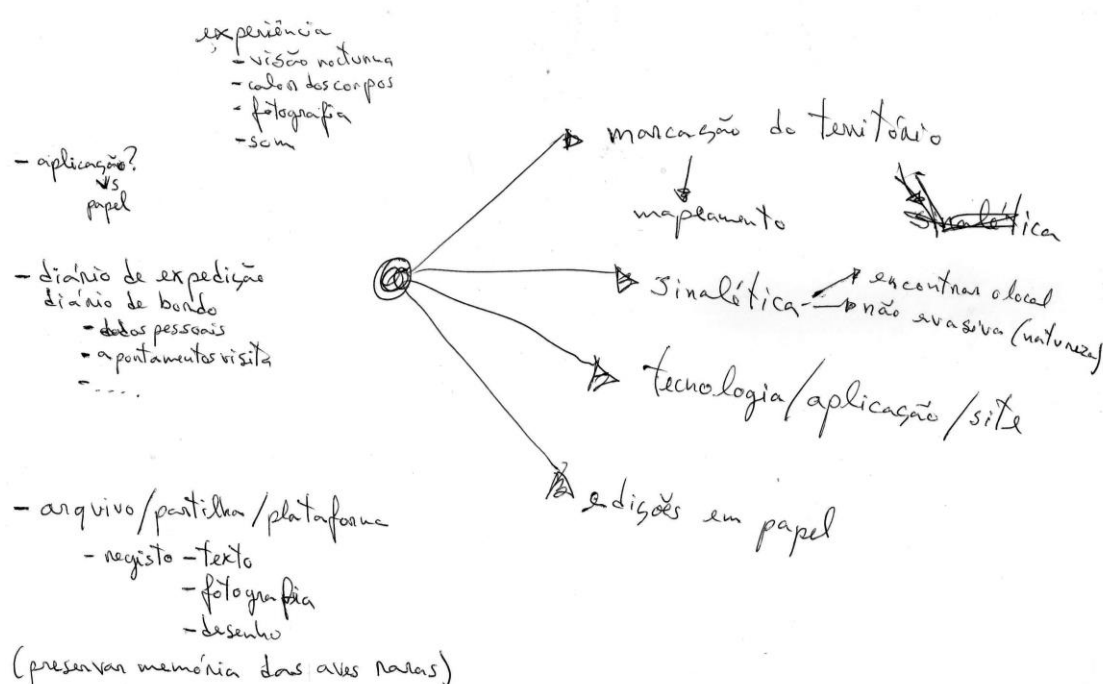 experiência
- visão nocturna
- calor dos corpos
- fotografia
- som
- aplicação?
vs
papel
- diário de expedição
diário de bordo
- dados pessoais
- apontamentos visita
- .....
- arquivo/partilha/plataforma
- registo - texto
- fotografia
- desenho
(preservar memória das aves raras)
marcação do território
mapeamento
sinalética
sinalética - encontrar o local
- não evasiva (natureza)
tecnologia/aplicação/site
edições em papel